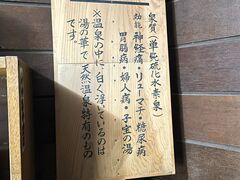 泉質(単純硫化水素泉)
効能 神経痛・リューマチ・糖尿病
胃腸病・婦人病・子宝の湯
※温泉の中に白く浮いているのは
湯の華で天然温泉特有のもの
です。